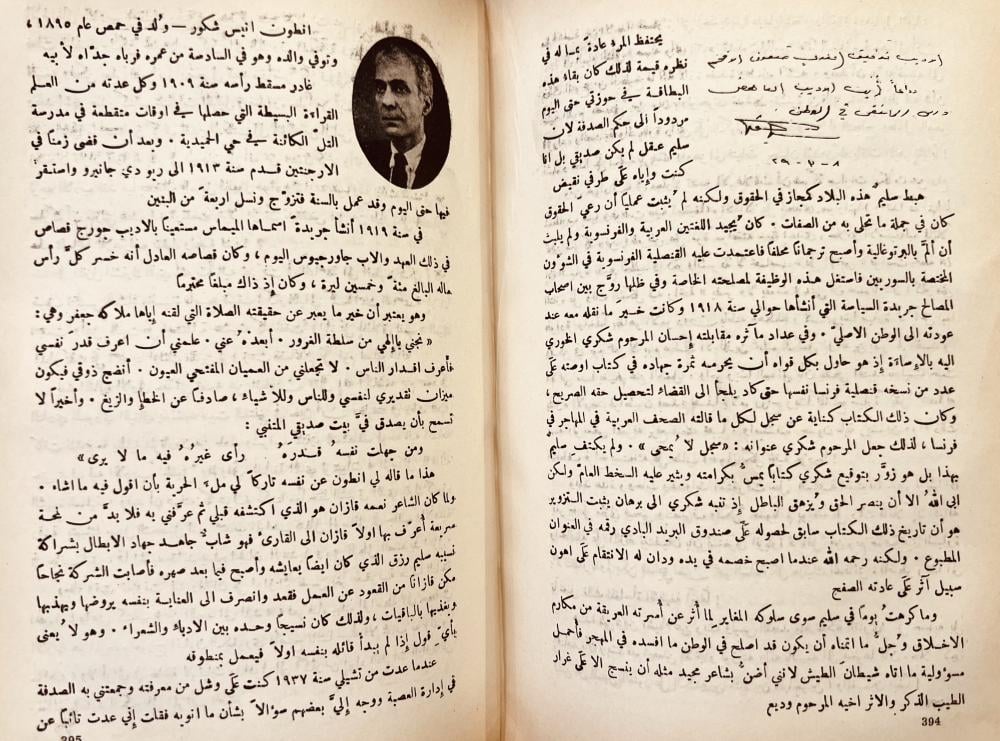 يحتفظ المرء عادة بما له في
نظره قيمة لذلك كان بقاء هذه
البطاقة في حوزتي حتى اليوم
مردوداً الى حكم الصدفة لان
سليم عقل لم يكن صديقي بل انا
كنت وإياه على طرفي نقيض
٨ - ٧ - ٢٩
هبط سليم هذه البلاد كمجاز في الحقوق ولكنه لم يُثبت عملياً أن رعي الحقوق
كان في جملة ما تحلى به من الصفات . كان يُجيد اللغتين العربية والفرنسوية ولم يلبث
أن ألمَّ بالبرتوغالية وأصبح ترجماناً محلفاً فاعتمدت عليه القنصلية الفرنسوية في الشؤون
المختصة بالسوريين فاستغل هذه الوظيفة لمصلحته الخاصة وفي ظلها روَّج بين اصحاب
المصالح جريدة السياسة التي أنشأها حوالي سنة ١٩١٨ وكانت خسيرَ ما نقله معه عند
عودته الى الوطن الاصليّ . وفي عداد مآثره مقابلته إحسان المرحوم شكري الخوري
اليه بالإساءة إذ هو حاول بكل قواه أن يحرمه ثمرة جهاده في كتاب اوصته على
عدد من نسخه قنصلية فرنسا نفسها حتى كاد يلجأ الى القضاء لتحصيل حقه الصريح ،
وكان ذلك الكتاب كناية عن سجل لكل ما قالته الصحف العربية في المهاجر في
فرنسا ، لذلك جعل المرحوم شكري عنوانه : «سجل لا يُمحى» . ولم يكتفِ سليمٌ
بهذا بل هو زوَّر بتوقيع شكري كتاباً يمسُّ بكرامته ويثير عليه السخط العامّ ولكن
ابى اللهُ الا أن ينصر الحق ويُزهق الباطل إذ تنبه شكري الى برهان يثبت التزوير
هو أن تاريخ ذلك الكتاب سابق لحصوله على صندوق البريد البادي رقمه في العنوان
المطبوع . ولكنه رحمه الله عندما اصبح خصمه في يده ودان له الانتقام على اهون
سبيل آثر على عادته الصفح
وما كرهتُ يوماً في سليم سوى سلوكه المغاير لما أُثر عن أُسرته العريقة من مكارم
الاخلاق وجُلُّ ما اتمناه أن يكون قد اصلح في الوطن ما افسده في المهجر فأحمل
مسؤولية ما اتاه شيطانَ الطيش لانني أضنُّ بشاعر مجيد مثله أن ينسج الا على غرار
الطيب الذكر والاثر اخيه المرحوم وديع
394
انطون انيس شكور — وُلد في حمص عام ١٨٩٥ ،
وتوفي والده وهو في السادسة من عمره فرباه جدّاه لأبيه
غادر مسقط رأسه سنة ١٩٠٩ وكل عدته من العلم
القراءة البسيطة التي حصلها في اوقات متقطعة في مدرسة
التلّ الكائنة في حي الحميدية . وبعد أن قضى زمناً في
الارجنتين قدم سنة ١٩١٣ الى ريو دي جانيرو واستقرّ
فيها حتى اليوم وقد عمل بالسنة فتزوّج ونسل اربعةً من البنين
في سنة ١٩١٩ أنشأ جريدةً اسماها الميماس مستعيناً بالاديب جورج قصاص
في ذلك العهد والاب جاورجيوس اليوم ، وكان قصاصه العادل أنه خسر كلَّ رأس
ماله البالغ مئةً وخمسين ليرة ، وكان إذ ذاك مبلغاً محترماً
وهو يعتبر أن خير ما يعبر عن حقيقته الصلاة التي لقنه إياها ملاكه جعفر وهي :
« نجني ياإلهي من سلطة الغرور . أبعدْهُ عني . علمني أن اعرف قدرَ نفسي
فأعرف اقدار الناس . لا تجعلني من العميان المفتحي العيون . أنضج ذوقي فيكون
ميزان تقديري لنفسي وللناس وللأشياء ، صادفاً عن الخطإ والزيغ . وأخيراً لا
تسمح بأن يصدق فيَّ بيت صديقي المتنبي :
ومن جهلت نفسهُ قدرَهُ رأى غيرُهُ فيه ما لا يرى»
هذا ما قاله لي انطون عن نفسه تاركاً لي ملءَ الحرية بأن اقول فيه ما اشاء .
ولما كان الشاعر نعمه قازان هو الذي اكتشفه قبلي ثم عرَّفني به فلا بدَّ من لمحة
سريعة أُعرّف بها اولاً قازان الى القارئ فهو شابٌّ جاهد جهاد الابطال بشراكة
نسيبه سليم رزق الذي كان ايضاً يعايشه وأصبح فيما بعد صهره فأصابت الشركة نجاحاً
مكن قازاناً من القعود عن العمل فقعد وانصرف الى العناية بنفسه يروضها ويهذبها
ويغذيها بالباقيات ، ولذلك كان نسيجاً وحده بين الادباء والشعراء . وهو لا يُعنى
بأيّ قول إذا لم يبدأ قائله بنفسه اولاً فيعمل بمنطوقه
عندما عدت من تشيلي سنة ١٩٣٧ كنت على وشل من معرفته وجمعتني به الصدفة
في إدارة العصبة ووجه إليَّ بعضهم سؤالاً بشأن ما انويه فقلت إني عدت تائباً عن
395